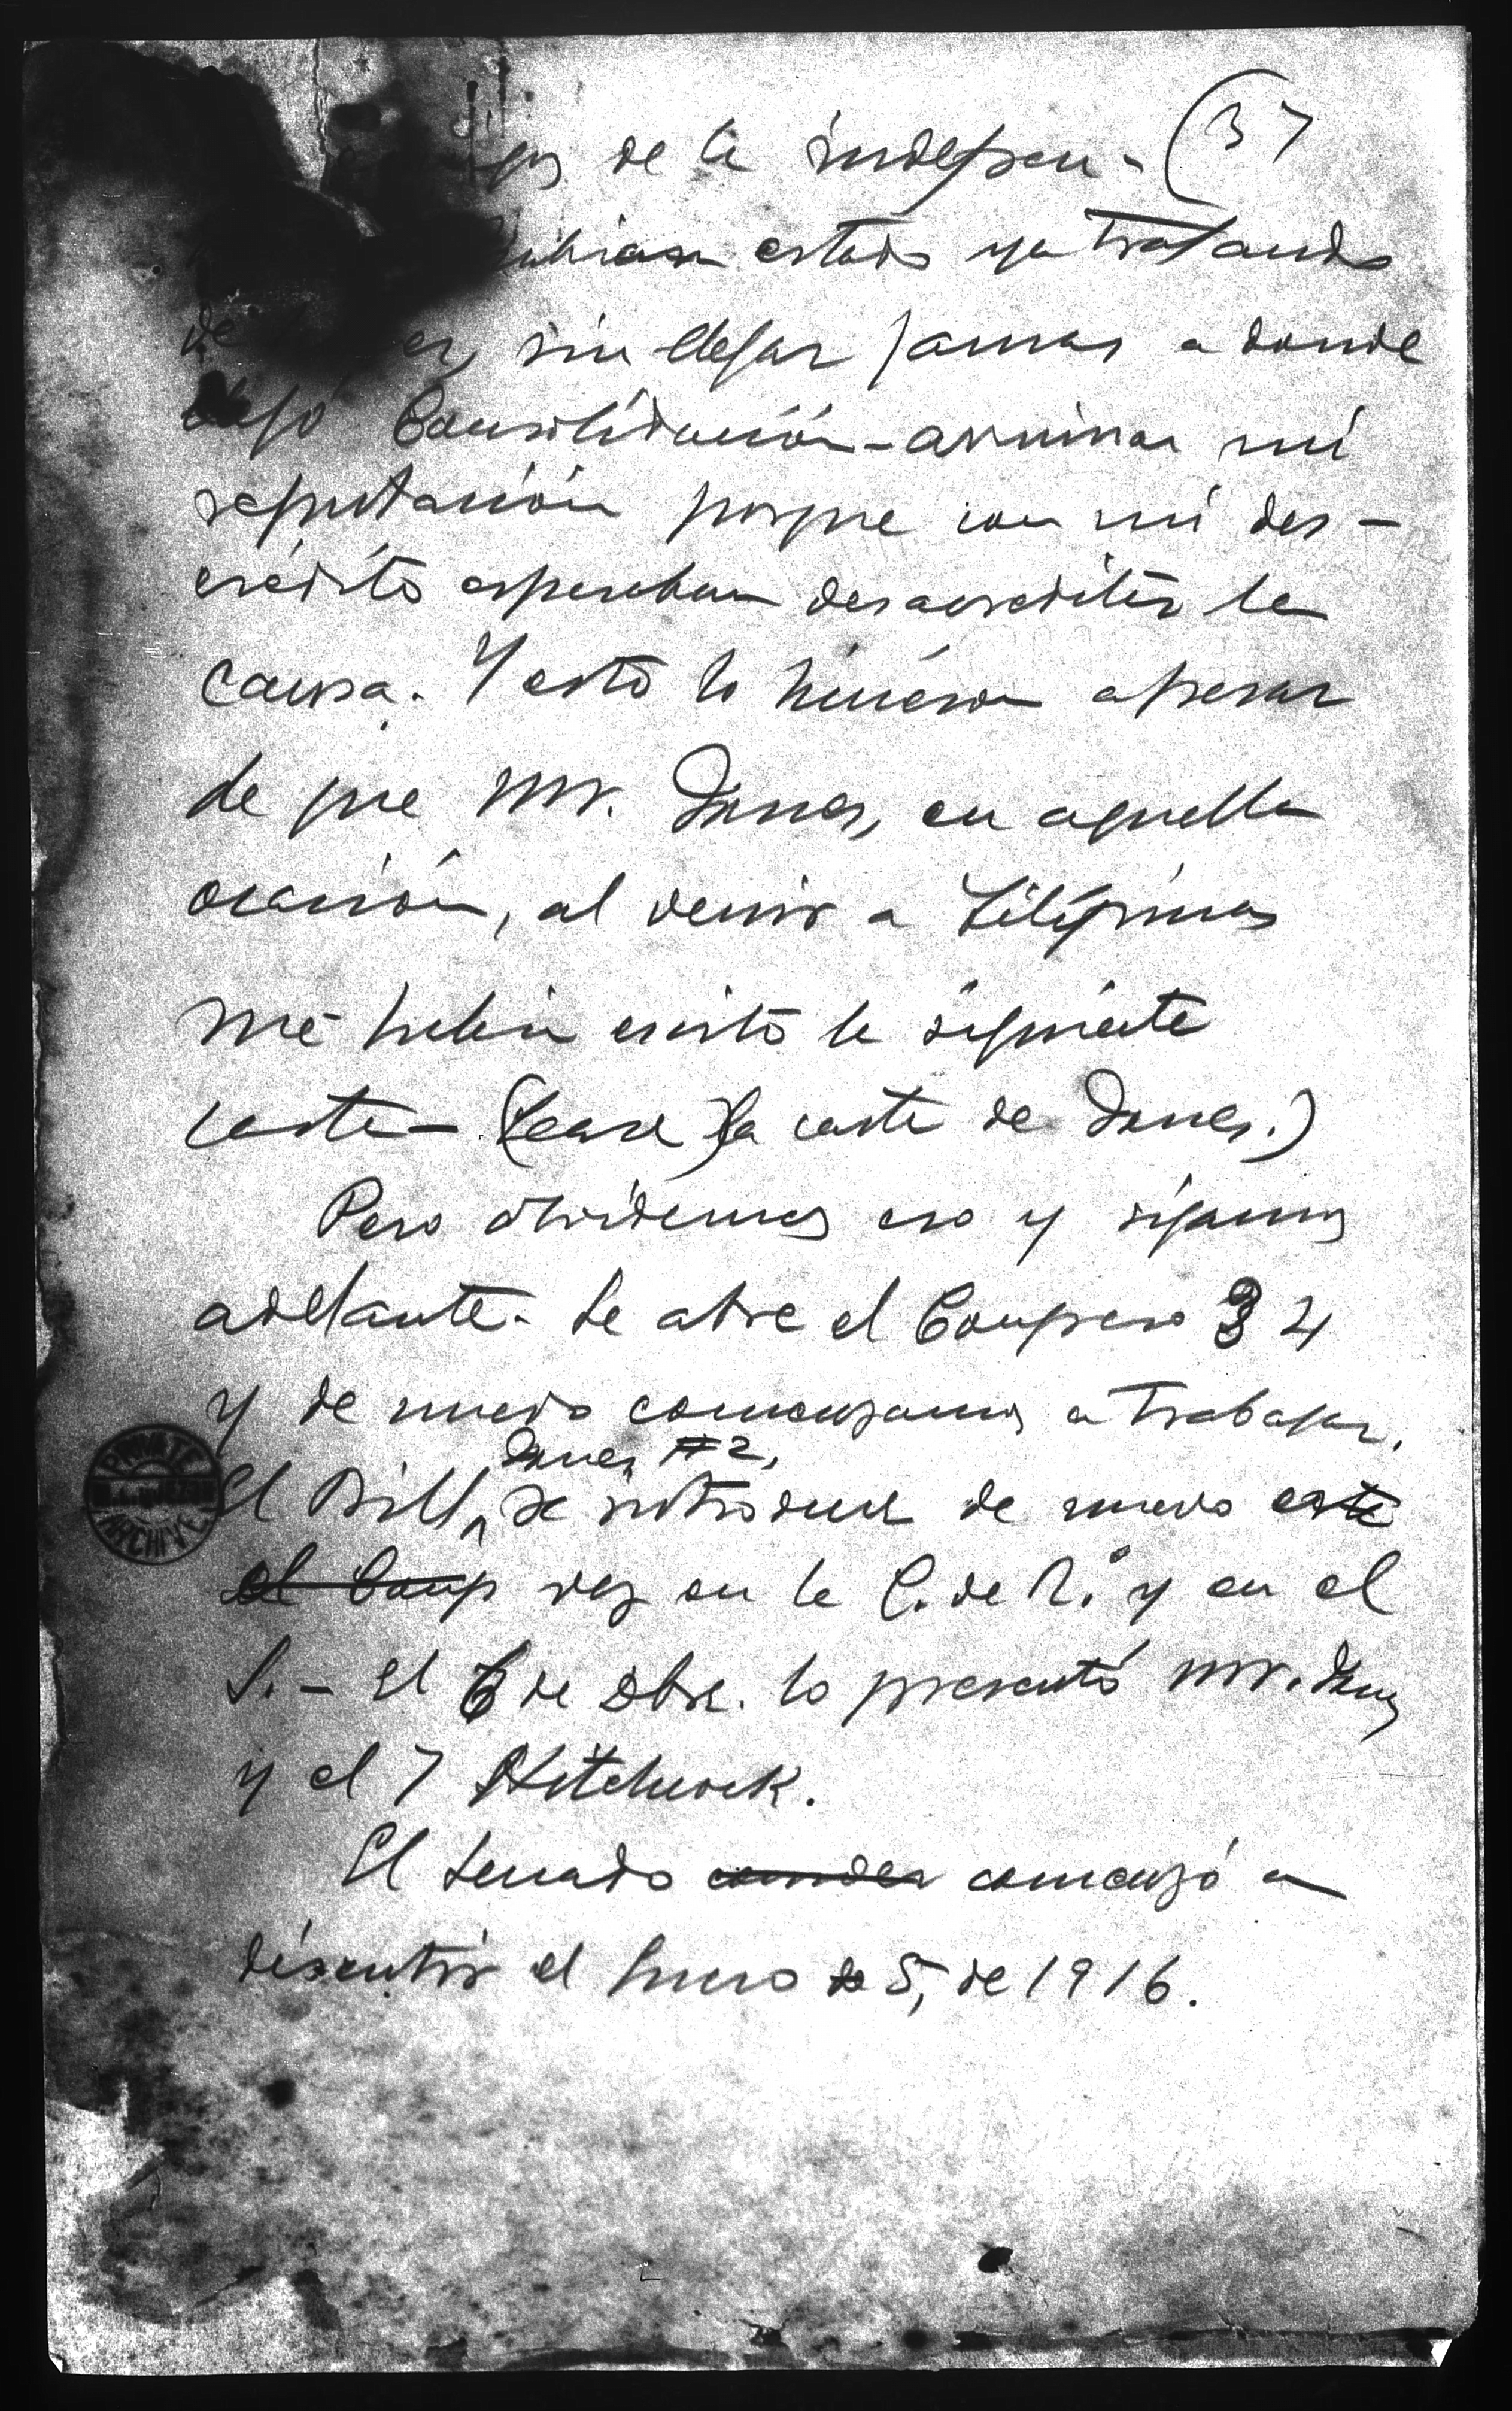 (37
de la indepen-
hubiesen estado ya tratando
de sin llegar jamas a donde
llegó Consolidación - arruinar mi
reputación porque con mi des-
crédito esperaban desacreditar la
causa. Y esto lo hicieron apesar
de que Mr. Jones, en aquella
ocasión, al venir a Filipinas
me habia escrito la siguiente
carta - (Lease) (la carta de Jones.)
Pero olvidemos eso y sigamos
adelante. Se abre el Congreso 34
y de nuevo comenzamos a trabajar.
Jones #2,
El Bill, se introduce de nuevo este
el Cong vez en la C. de R. y en el
S. - El 6 de Dbre. lo presentó Mr. Jones
y el 7 Hitchcock.
El Senado comenzó a
discutir el Enero de 5, de 1916.
PRIVATE
ARCHIVE